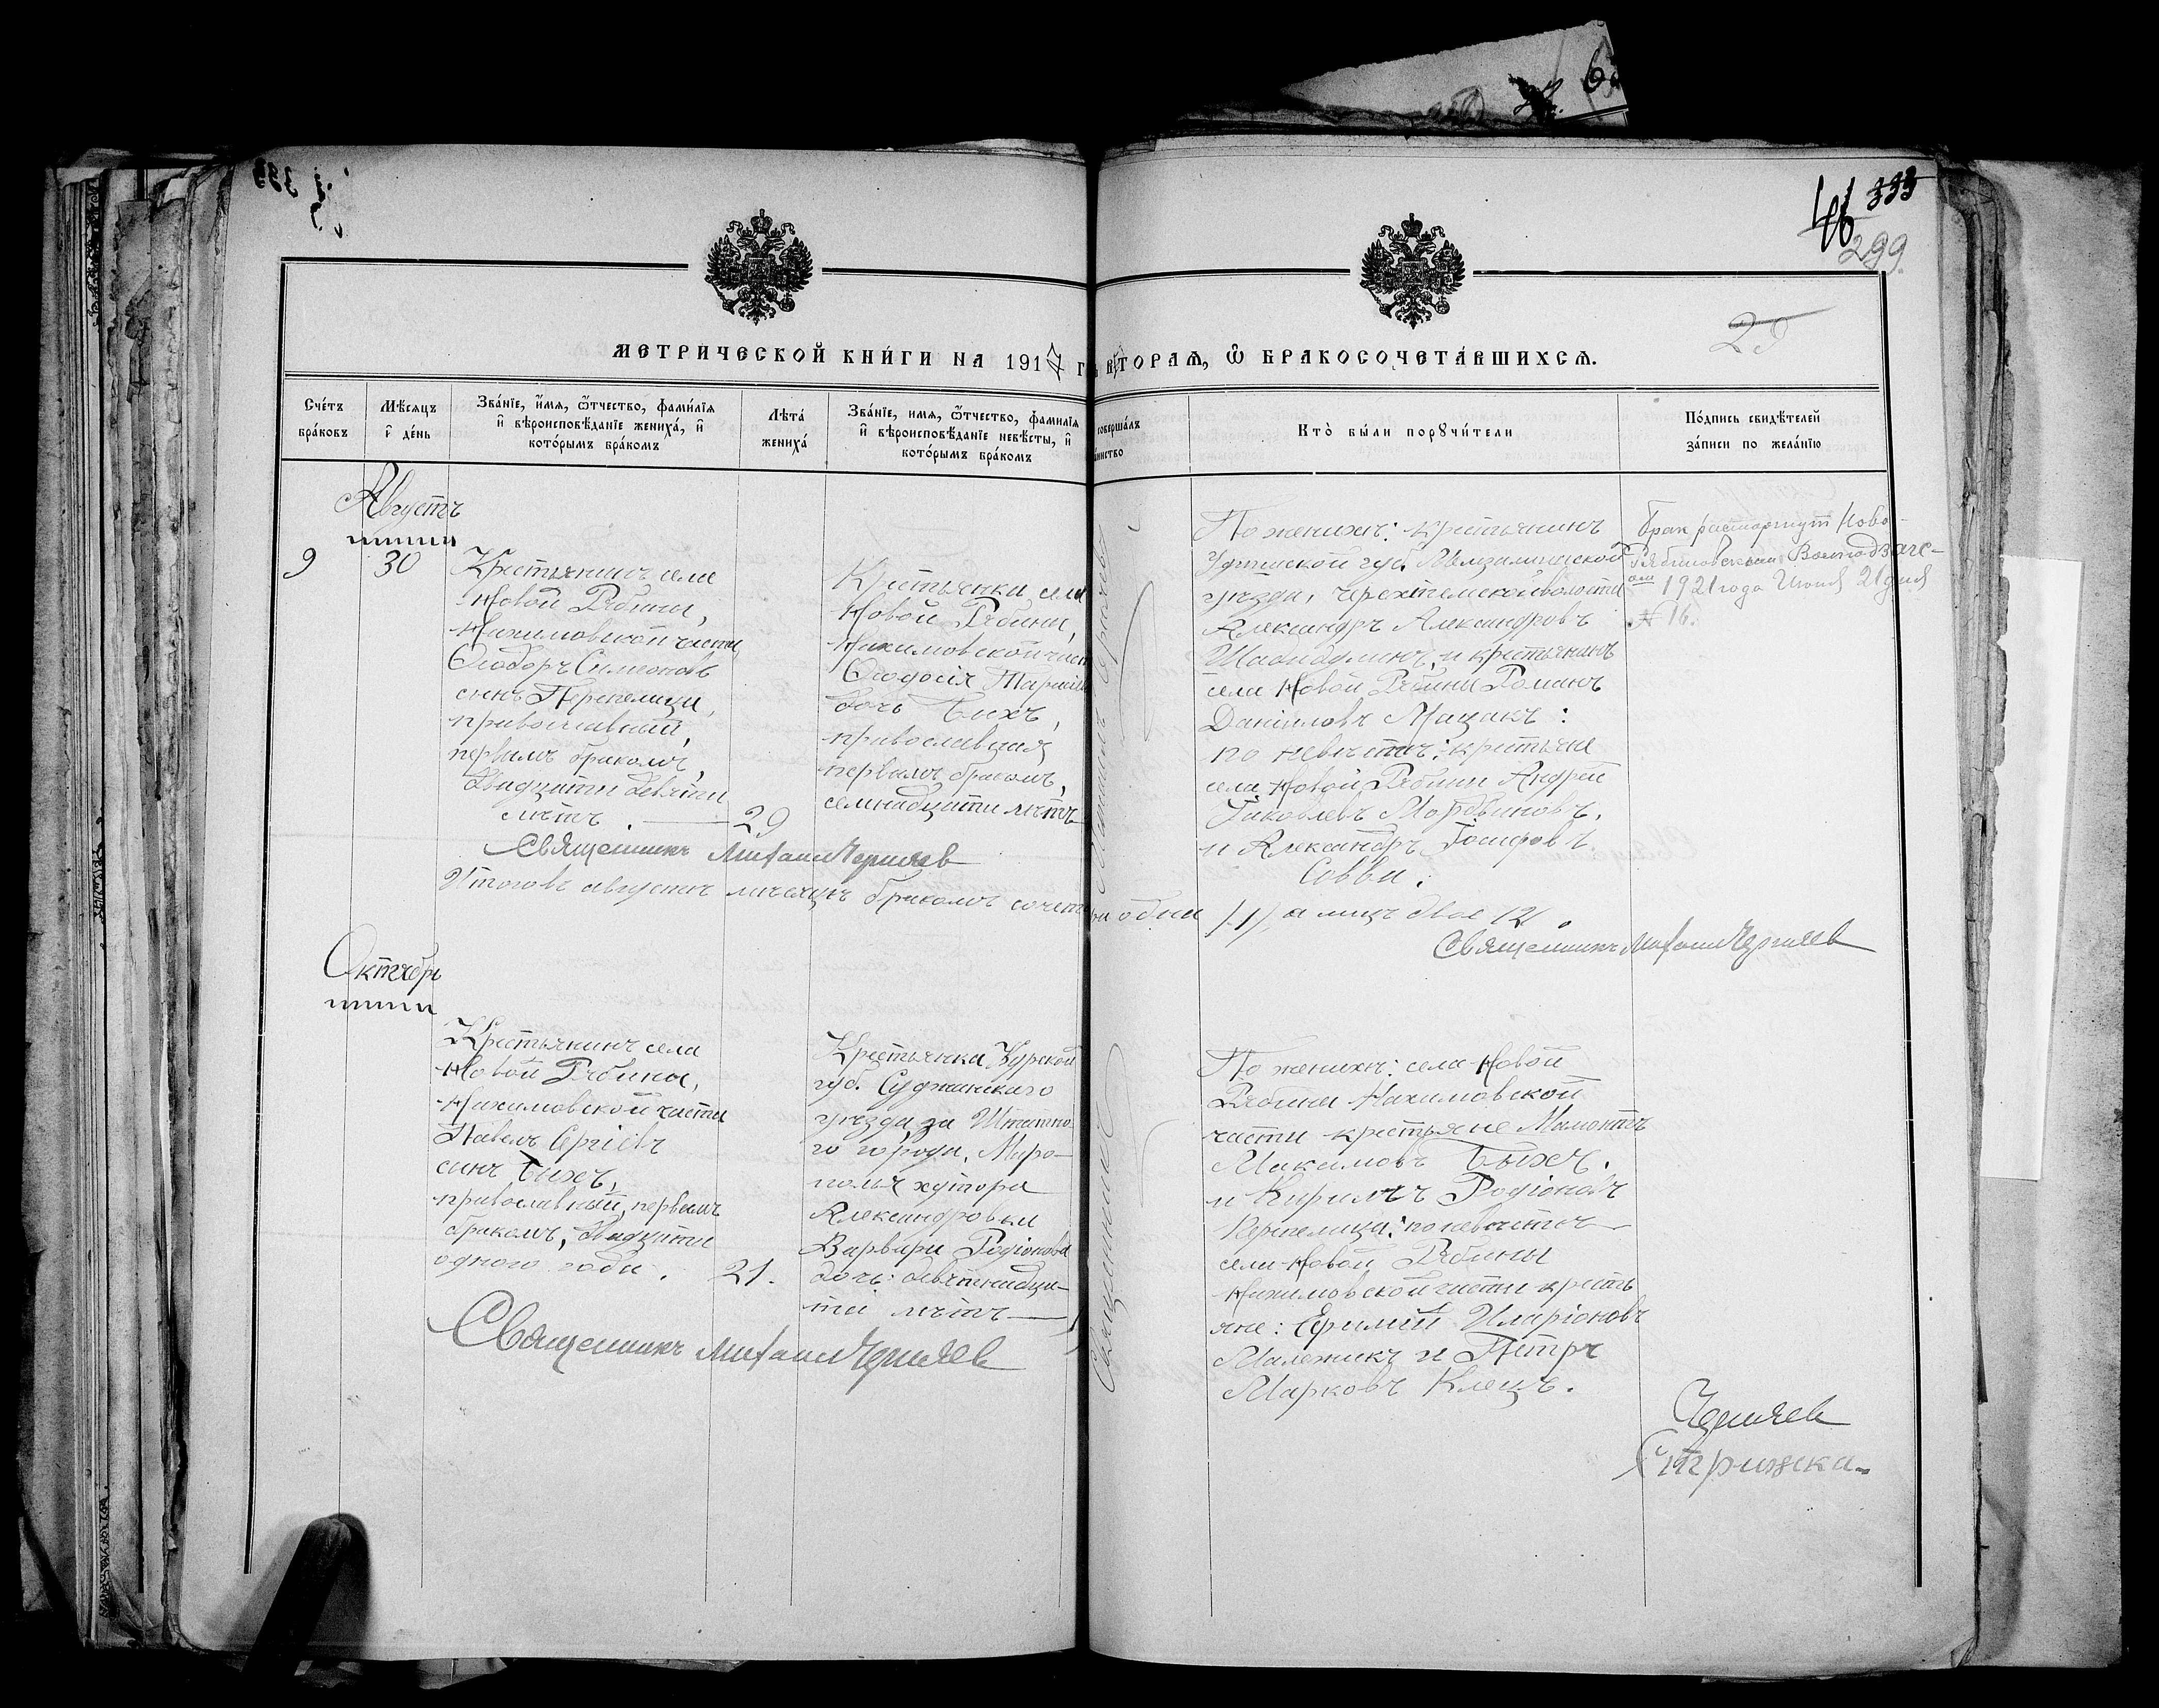 333
299
25
МЕТРИЧЕСКОЙ КНИ́ГИ НА 1917 Г
ВТОРАЯ, Ѿ БРАКОСОЧЕТА́ВШИХСЯ.
Сче́тъ бра́ковъ
Мѣ́сяцъ и҆ де́нь
Зва́нїе, и҆́мя, ѻ҆́тчество, фами́лїя
и҆ вѣроисповѣ́данїе жениха́, и҆
кото́рымъ бра́комъ
Лѣта́ жениха́
Зва́нїе, имя, ѻ҆́тчество, фамилїя
и҆ вѣроисповѣ́данїе невѣ́сты, и҆
кото́рымъ бра́комъ
соверша́лъ
Кто̀ бы́ли порꙋчи́тели
По́дпись свидѣ́телей
за́писи по жела́нїю
Августъ
9
30
Крестьянинъ села
Новой Рябины,
Нахимовской части
Ѳеодоръ Симеоновъ
сынъ Перепелица,
православный,
первымъ бракомъ,
двадцати девяти
лѣтъ.
29
Крестьянка села
Новой Рябины,
Нахимовской
Ѳеодосія
дочь Быхъ,
православная,
первымъ бракомъ,
семнадцати лѣтъ
Священникъ Михаилъ Черняев
По женихѣ: крестьянинъ
Уфимской губ. Мензелинской
уѣзда, волости
Александръ Александровъ
и крестьянинъ
села Новой Рябины Романъ
Даніиловъ Мацакъ:
по невѣстѣ: крестьяне
села Новой Рябины Андрей
Іаковлевъ Мордвиновъ,
и Александръ Іосифовъ
Совва.
Брак расторгнут Ново-
Рябиновским Волподзаге-
ом 1921 года Июня 21 дня
№ 16.
Итого въ августѣ мѣсяцѣ бракомъ сочет одна /1/, а лицъ двое /2/.
Священникъ Михаилъ Черняев
Октябрь
Крестьянинъ села
Новой Рябины,
Нахимовской части
Павелъ Сергіевъ
сынъ Быхъ,
православный, первымъ
бракомъ, двадцати
одного года.
21.
Крестьянка Курской
губ. Суджанскаго
уѣзда за Штатно-
го города, Миро-
полья хутора
Александровки
Варвара Родіонова
дочь: девятнадца-
ти лѣтъ
Священникъ Михаилъ Черняев
По женихѣ: села Новой
Рябины Нахимовской
части крестьяне Мамонтъ
Макимовъ Быхъ.
и Кириллъ Родіоновъ
Перепелица: по невѣстѣ
села Новой Рябины
Нахимовской части кресть
яне: Ефимій Иларіоновъ
Малежикъ и Петръ
Марковъ Клецъ.
Черняев
Стрижка